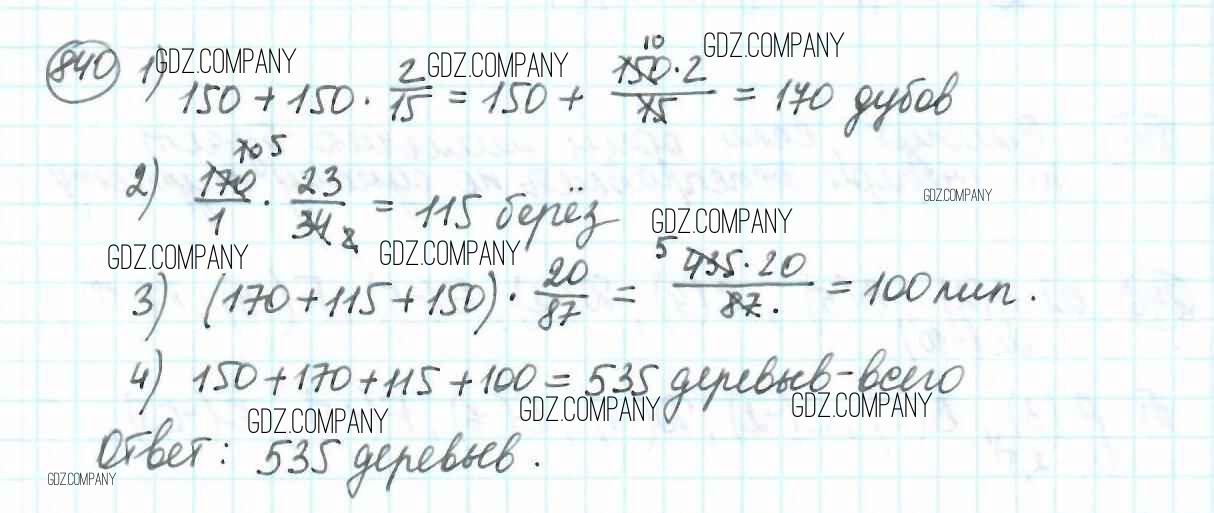 840 1) GDZ.COMPANY GDZ.COMPANY GDZ.COMPANY
150 + 150 · 2/15 = 150 + 150·2/15 10 = 170 дубов
2) 170/1 · 23/34 10 5 2 = 115 берёз GDZ.COMPANY
GDZ.COMPANY GDZ.COMPANY GDZ.COMPANY
3) (170 + 115 + 150) · 20/87 = 5 435·20/87· = 100 лип.
4) 150 + 170 + 115 + 100 = 535 деревыв - всего
GDZ.COMPANY GDZ.COMPANY GDZ.COMPANY
Ответ: 535 деревыев.
GDZ.COMPANY